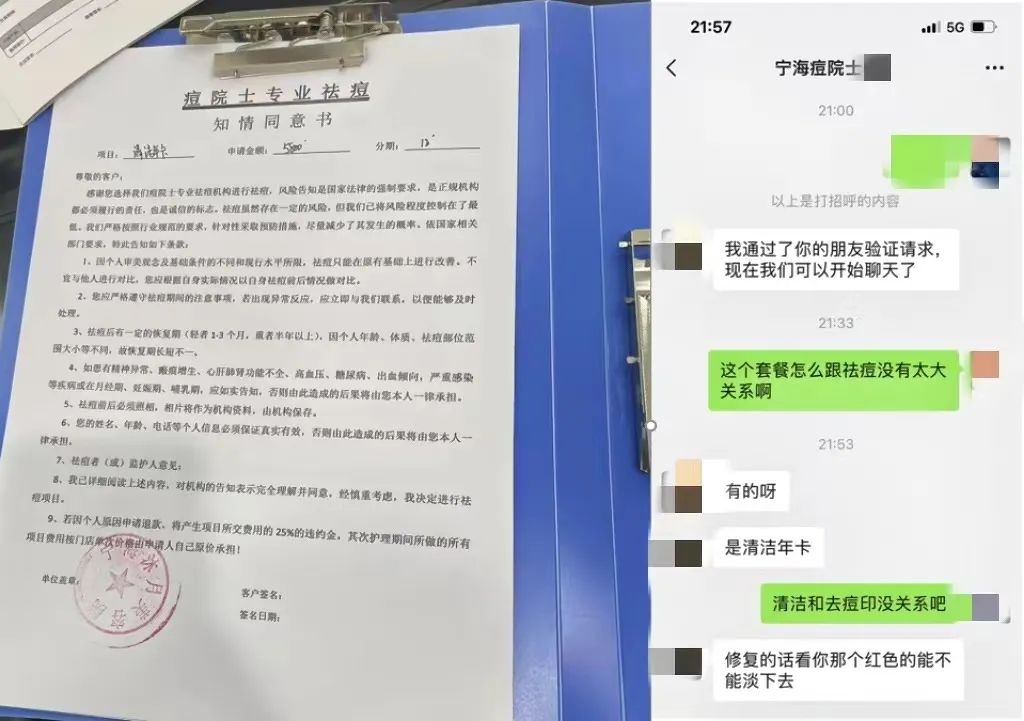 痘院士专业祛痘
知情同意书
项目：清洁卡 申请金额：5800 分期：12
尊敬的客户：
感谢您选择我们痘院士专业祛痘机构进行祛痘，风险告知是国家法律的强制要求，是正规机构
都必须履行的责任，也是诚信的标志。祛痘虽然存在一定的风险，但我们已将风险程度控制在了最
低。我们严格按照行业规范的要求，针对性采取预防措施，尽量减少了其发生的概率。依国家相关
部门要求，特此告知如下条款：
1、因个人审美观念及基础条件的不同和现行水平所限，祛痘只能在原有基础上进行改善，不
宜与他人进行对比，您应根据自身实际情况以自身祛痘前后情况做对比。
2、您应严格遵守祛痘期间的注意事项，若出现异常反应，应立即与我们联系，以便能够及时
处理。
3、祛痘后有一定的恢复期（轻者1-3个月，重者半年以上），因个人年龄、体质、祛痘部位范
围大小等不同，故恢复期长短不一、
4、如患有精神异常、瘢痕增生、心肝肺肾功能不全、高血压、糖尿病、出血倾向，严重感染
等疾病或在月经期、妊娠期、哺乳期，应如实告知，否则由此造成的后果将由您本人一律承担。
5、祛痘前后必须照相，相片将作为机构资料，由机构保存。
6、您的姓名、年龄、电话等个人信息必须保证真实有效，否则由此造成的后果将由您本人一
律承担。
7、祛痘者（或）监护人意见：
8、我已详细阅读上述内容，对机构的告知表示完全理解并同意，经慎重考虑，我决定进行祛
痘项目。
9、若因个人原因申请退款、将产生项目所交费用的25%的违约金，其次护理期间所做的所有
项目费用按门店单次价格由申请人自己原价承担！
单位盖章：
客户签名：
签名日期：
21:57
5G
宁海痘院士
21:00
以上是打招呼的内容
我通过了你的朋友验证请求，
现在我们可以开始聊天了
21:33
这个套餐怎么跟祛痘没有太大
关系啊
21:53
有的呀
是清洁年卡
清洁和去痘印没关系吧
修复的话看你那个红色的能不
能淡下去